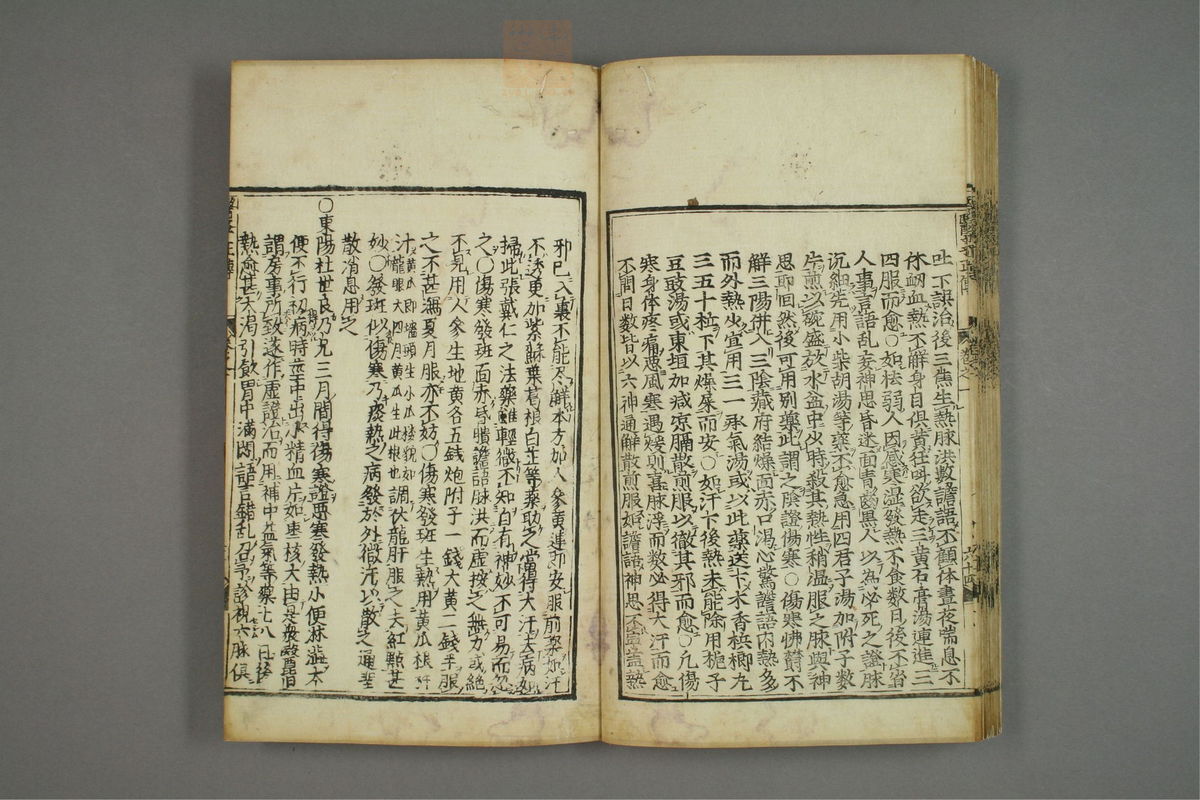 吐下誤治後三焦生熱脉洪數譫語不顧休晝夜喘息不
休衂血熱不解身目俱黄狂呌欲走三黄石膏湯連進三
四服而愈〇如怯弱人因感寒湿發熱不食數日後不省
人事言語乱妄神思昏迷面青齒黒人以為必死之證脉
沉細先用小柴胡湯等藥不愈急用四君子湯加附子數
片煎以碗盛放水盆中少時殺其熱性稍温服之脉與神
思即回然後可用別藥此謂之陰證傷寒〇傷寒怫欝不
解三陽併入三陰藏府結燥面赤口渴心驚譫語内熱多
而外熱少宜用三一承氣湯或以此藥送下木香梹榔丸
三五十粒下其燥屎而安〇如汗下後熱未能除用梔子
豆豉湯或東垣加减凉膈散煎服以徹其邪而愈〇凡傷
寒身体疼痛悪風寒遇煖則喜脉浮而數必得大汗而愈
不問日数皆以六神通解散煎服如譫語神思不
邪已入裏不能尽解本方加人參黄連即安服前藥如汗
不透更加紫蘇葉葛根白芷等藥助之當得大汗去病如
掃此張戴仁之法藥雖輕微不知自有神妙不可易而忽
之〇傷寒發班面亦昏瞶譫語脉洪而虚按之無力或絶
不見用人參生地黄各五錢炮附子一錢大黄二錢半服
之不甚瀉夏月服亦不妨〇傷寒發斑生熱用黄瓜根
汁黄瓜即墻頭生小瓜楼貌如龍眼大四月黄瓜生此根也調伏龍肝服之去紅點甚
妙〇發班似傷寒乃痰熱之病發於外微汗以散之通聖
散消息用之
〇東陽杜世良乃兄三月間得傷寒證悪寒發熱小便淋澁大
便不行初病時莖中出小精血片如棗核大由是衆醫皆
謂房事所致遂作虚證治而用補中益氣等藥七八日後
熱愈甚大渴引飲胃中滿悶語言錯乱召予診視六脉俱